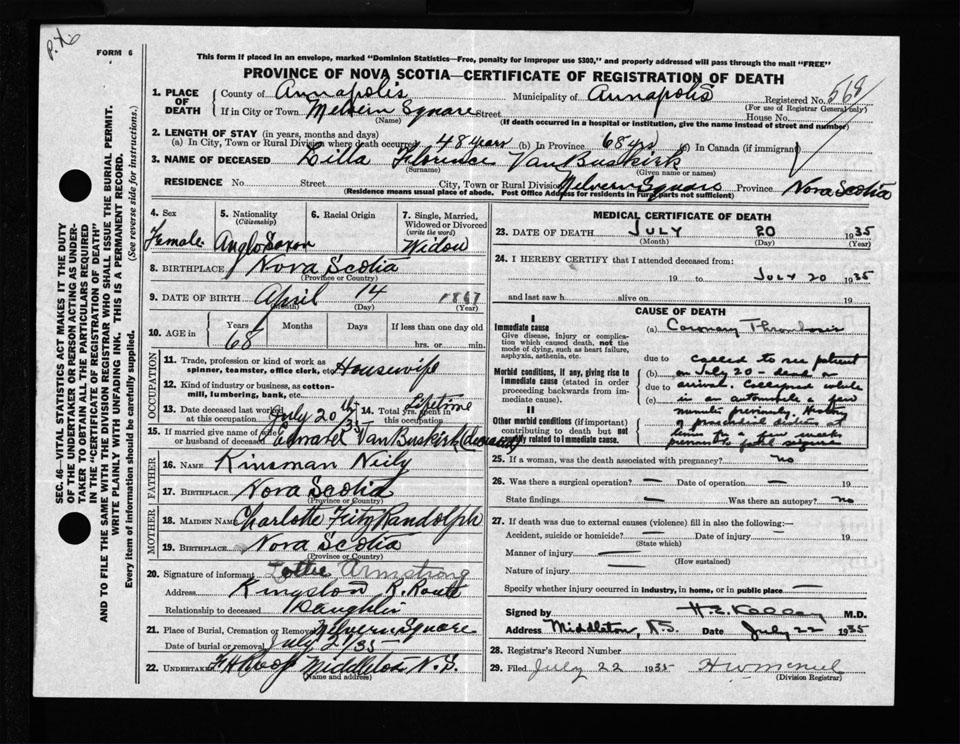 FORM 6
This form if placed in an envelope, marked "Dominion Statistics—Free, penalty for improper use $300," and properly addressed will pass through the mail "FREE"
PROVINCE OF NOVA SCOTIA—CERTIFICATE OF REGISTRATION OF DEATH
1. PLACE OF DEATH County of Annapolis Municipality of Annapolis Registered No. 568
(For use of Registrar General only)
If in City or Town Melvern Square Street House No.
(Name) (If death occurred in a hospital or institution, give the name instead of street and number)
2. LENGTH OF STAY (in years, months and days)
(a) In City, Town or Rural Division where death occurred 48 years (b) In Province 68 yrs (c) In Canada (if immigrant)
3. NAME OF DECEASED Lilla Florence VanBuskirk
(Surname) (Given name or names)
RESIDENCE No. Street City, Town or Rural Division Melvern Square Province Nova Scotia
(Residence means usual place of abode. Post Office Address for residents in rural parts not sufficient)
4. Sex Female
5. Nationality (Citizenship) Anglo Saxon
6. Racial Origin
7. Single, Married, Widowed or Divorced (write the word) Widow
8. BIRTHPLACE Nova Scotia
(Province or Country)
9. DATE OF BIRTH April 14 1867
(Month) (Day) (Year)
10. AGE in Years Months Days If less than one day old
68 hrs. or min.
OCCUPATION
11. Trade, profession or kind of work as spinner, teamster, office clerk, etc. Housewife
12. Kind of industry or business, as cotton-mill, lumbering, bank, etc.
13. Date deceased last worked at this occupation July 20th 35 14. Total yrs. spent in this occupation Lifetime
15. If married give name of wife or husband of deceased Edward VanBuskirk (deceased)
FATHER
16. NAME Kinsman Neily
17. BIRTHPLACE Nova Scotia
(Province or Country)
MOTHER
18. MAIDEN NAME Charlotte FitzRandolph
19. BIRTHPLACE Nova Scotia
(Province or Country)
20. Signature of informant Lottie Armstrong
Address Kingston R. Route
Relationship to deceased Daughter
21. Place of Burial, Cremation or Removal Melvern Square
Date of burial or removal July 21/35
22. UNDERTAKER Middleton N.S.
(Name and address)
MEDICAL CERTIFICATE OF DEATH
23. DATE OF DEATH JULY 20 1935
(Month) (Day) (Year)
24. I HEREBY CERTIFY that I attended deceased from:
19 to JULY 20 1935
and last saw h alive on 19
CAUSE OF DEATH
I
Immediate cause (a) Coronary Thrombosis
Give disease, injury or complication which caused death, not the mode of dying, such as heart failure, asphyxia, asthenia, etc.
due to called to see patient
Morbid conditions, if any, giving rise to immediate cause (stated in order proceeding backwards from immediate cause).
(b) on July 20 - dead on
due to arrival. Collapsed while
(c) in an automobile a few
II
Other morbid conditions (if important) contributing to death but not causally related to immediate cause.
minutes previously. History
of
a few weeks
previous to fatal seizure
25. If a woman, was the death associated with pregnancy? no
26. Was there a surgical operation? — Date of operation — 19
State findings — Was there an autopsy? no
27. If death was due to external causes (violence) fill in also the following:—
Accident, suicide or homicide? — Date of injury — 19
(State which)
Manner of injury —
(How sustained)
Nature of injury —
Specify whether injury occurred in industry, in home, or in public place —
Signed by H.E. Kelley M.D.
Address Middleton, N.S. Date July 22 1935
28. Registrar's Record Number
29. Filed July 22 1935
(Division Registrar)
SEC. 46—VITAL STATISTICS ACT MAKES IT THE DUTY
OF THE UNDERTAKER OR PERSON ACTING AS UNDER-
TAKER TO OBTAIN ALL THE PARTICULARS REQUIRED
IN THE "CERTIFICATE OF REGISTRATION OF DEATH"
AND TO FILE THE SAME WITH THE DIVISION REGISTRAR WHO SHALL ISSUE THE BURIAL PERMIT.
WRITE PLAINLY WITH UNFADING INK. THIS IS A PERMANENT RECORD.
Every item of information should be carefully supplied. (See reverse side for instructions.)